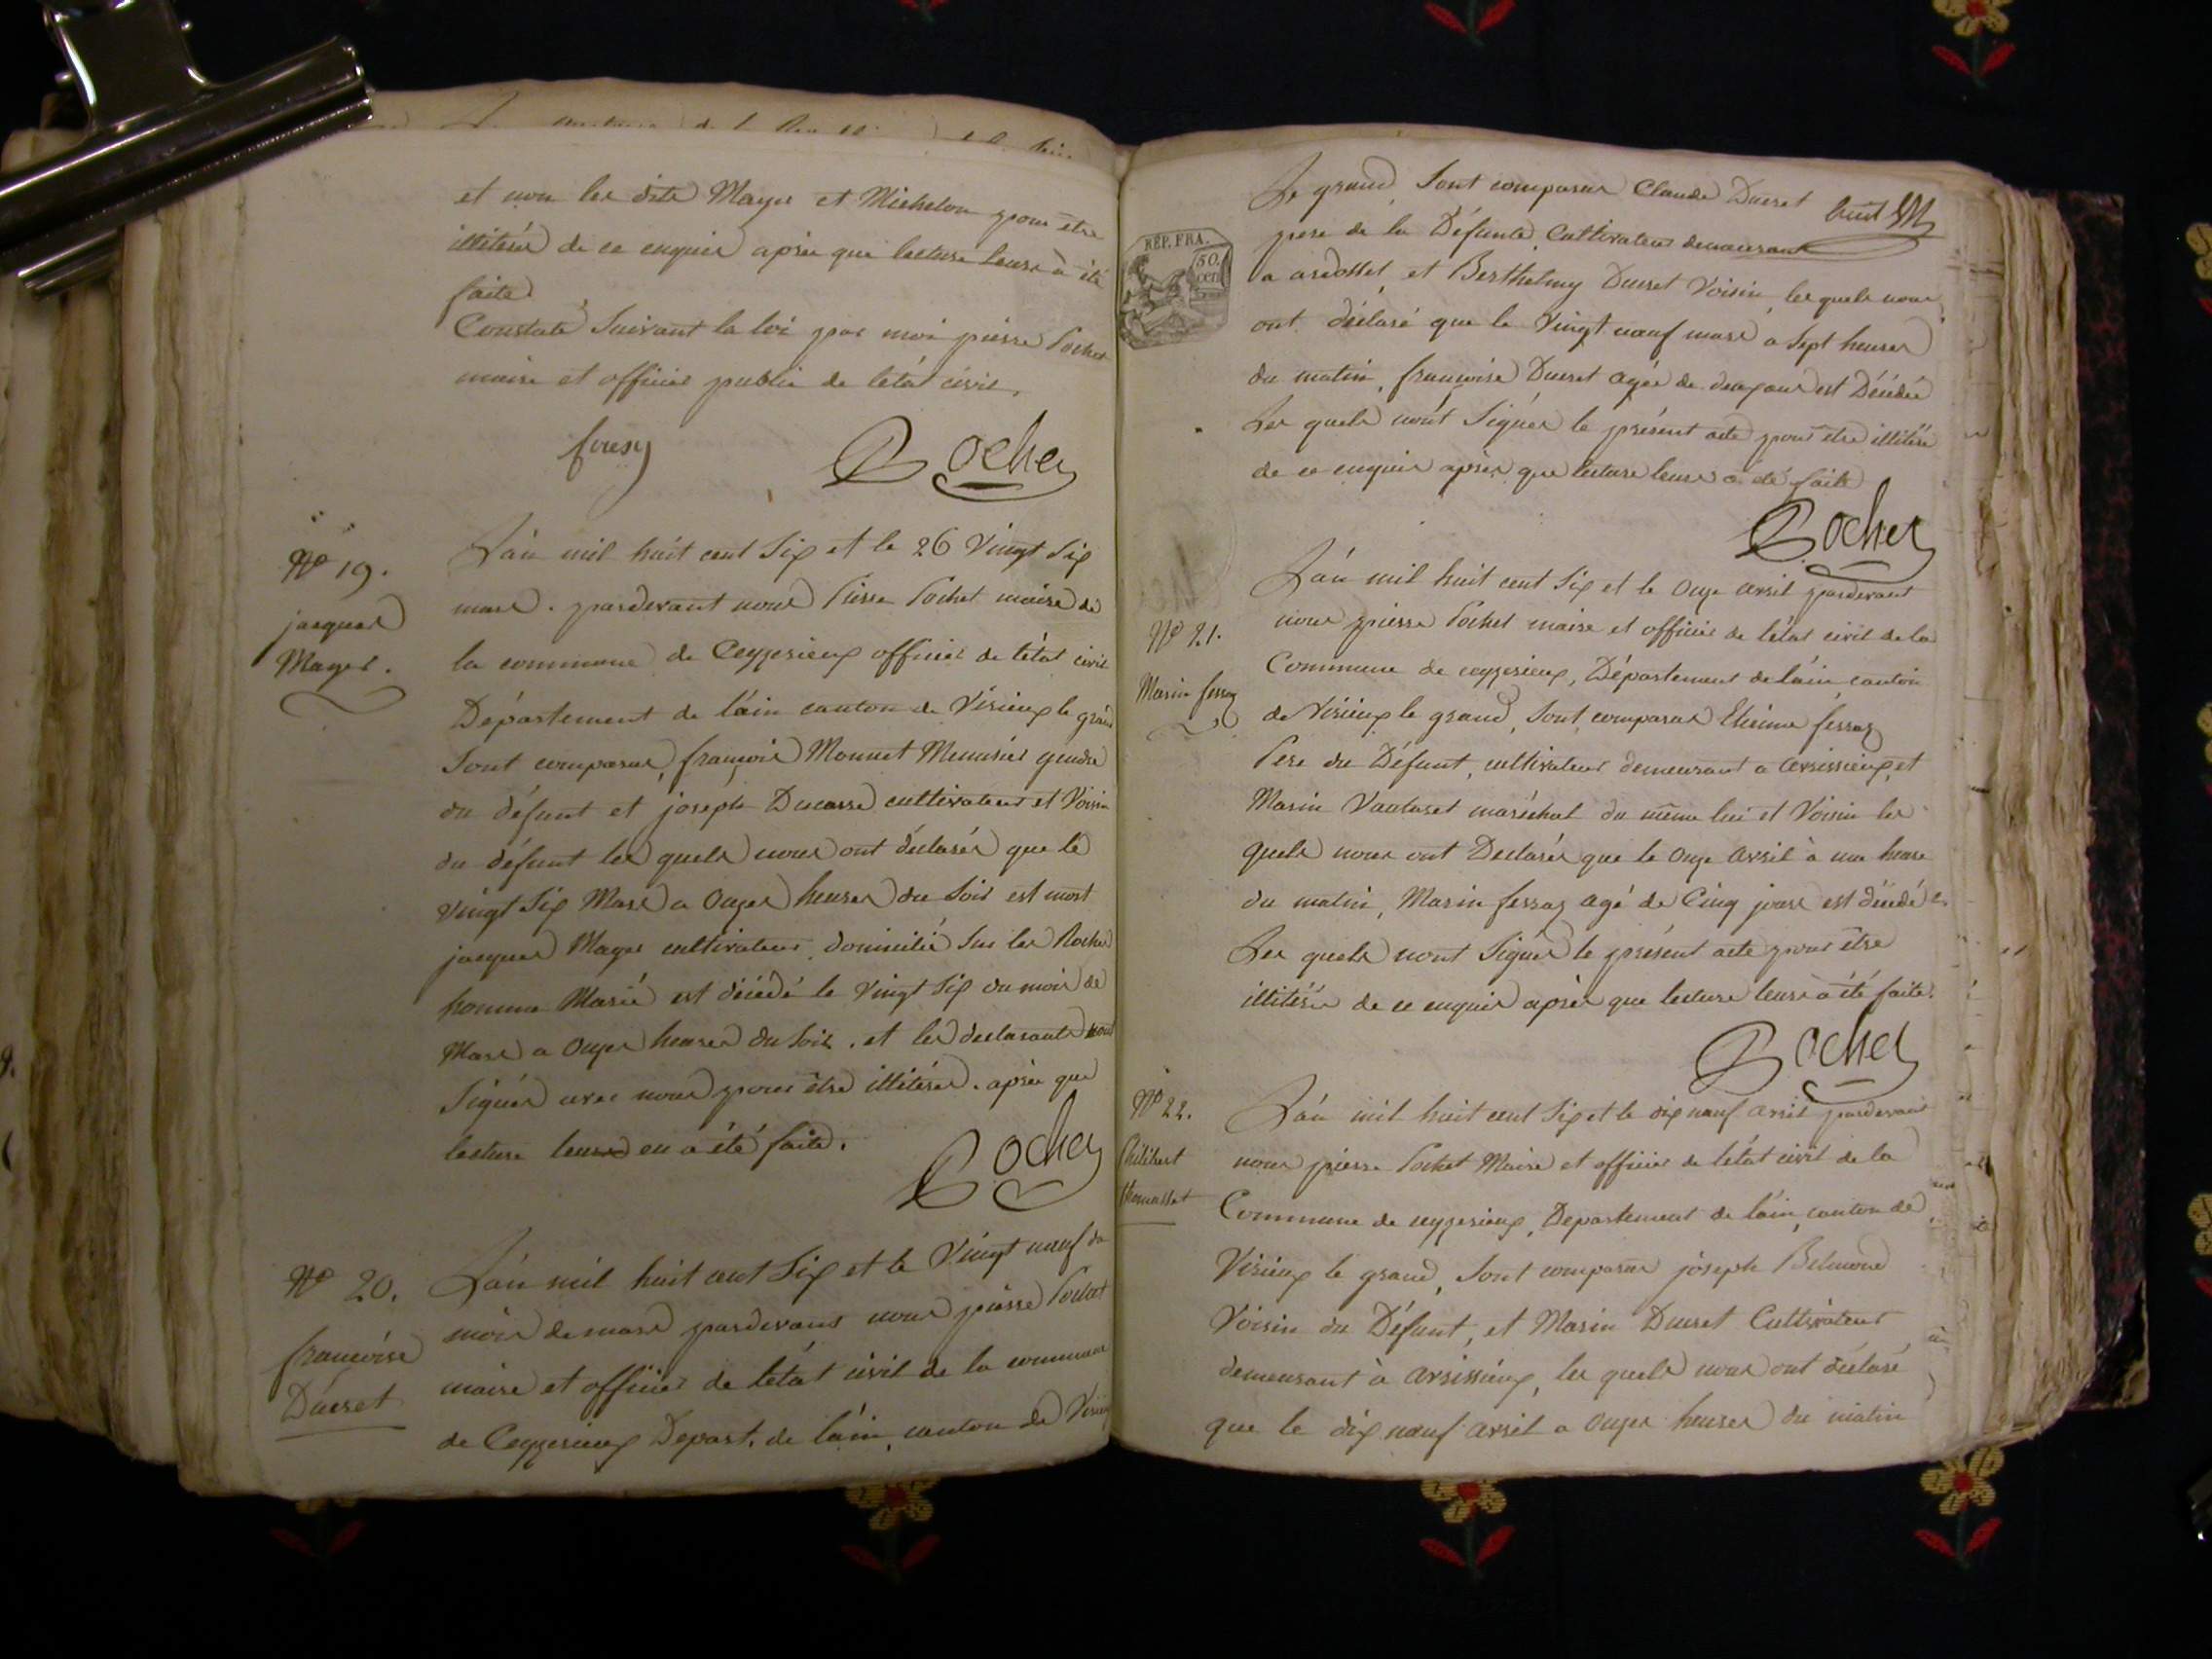 et non les dits Mayer et Michelon pour etre
illitérés de ce enquis après que lecture leure à été
faite
Constaté Suivant la loi par moi pierre Pochet
maire et officier public de létat civil,
P ochet
N° 19.
jacques
Mayer.
Lán mil huit cent Six et le 26 Vingt Six
mars. pardevant nous Pierre Pochet maire de
la commune de Ceyzerieux officier de létat civil
Département de láin canton de Virieux le grand
Sont comparus, françois Monnet Menusier gendre
du défunt et joseph Ducarre cultivateur et Voisin
du défunt les quels nous ont déclarés que le
vingt Six Mars a Onzes heures du Soir est mort
jacques Mayer cultivateur, domicilié Sur les Roches
homme Marié est décédé le Vingt Six du mois de
Mars a Onzes heures du Soir. et les declarants nont
Signés avec nous pour être illitérés. après que
lecture leure en a été faite.
P ochet
N° 20.
françoise
Ducret
Lán mil huit cent Six et le Vingt neuf du
mois de mars pardevans nous pierre Pochet
maire et officier de létat civil de la commune
de Ceyzerieux Depart. de láin, canton de Virieux
Le grand, Sont comparus Claude Ducret
huit
pere de la Défunte, Cultivateur demeurant
RÉP. FRA.
50.
cen
a ardosset, et Berthelmy Ducret Voisin, les quels nous
ont déclaré que le Vingt neuf mars a Sept heures
du matin, françoise Ducret agée de deux jours est Décédée
Les quels nónt Signés le présent acte pour etre illitéré
de ce enquis après que lecture leure a été faite
P ochet
N° 21.
Marin ferraz
Lán mil huit cent Six et le Onze avril pardevant
nous pierre Pochet maire et officier de létat civil de la
Commune de ceyzerieux, Département de láin canton
de Virieux le grand, Sont comparus Etienne ferraz
Pere du Défunt, cultivateur demeurant a avrissieux, et
Marin Vautaret maréchal du même lieu et Voisin les
quels nous ont Declarés que le Onze avril à une heure
du matin, Marin ferraz agé de Cinq jours est décédé
Les quels nont Signés le présent acte pour être
illitérés de ce enquis après que lecture leure à été faite.
P ochet
N° 22.
Philibert
Thomasset
Lán mil huit cent Six et le dix neuf avril pardevant
nous pierre Pochet Maire et officier de létat civil de la
Commune de ceyzerieux, Departement de láin, canton de
Virieux le grand, Sont comparus joseph Belmond
Voisin du Défunt, et Marin Ducret Cultivateur
demeurant à avrissieux, les quels nous ont déclaré
que le dix neuf avril a onzes heures du matin